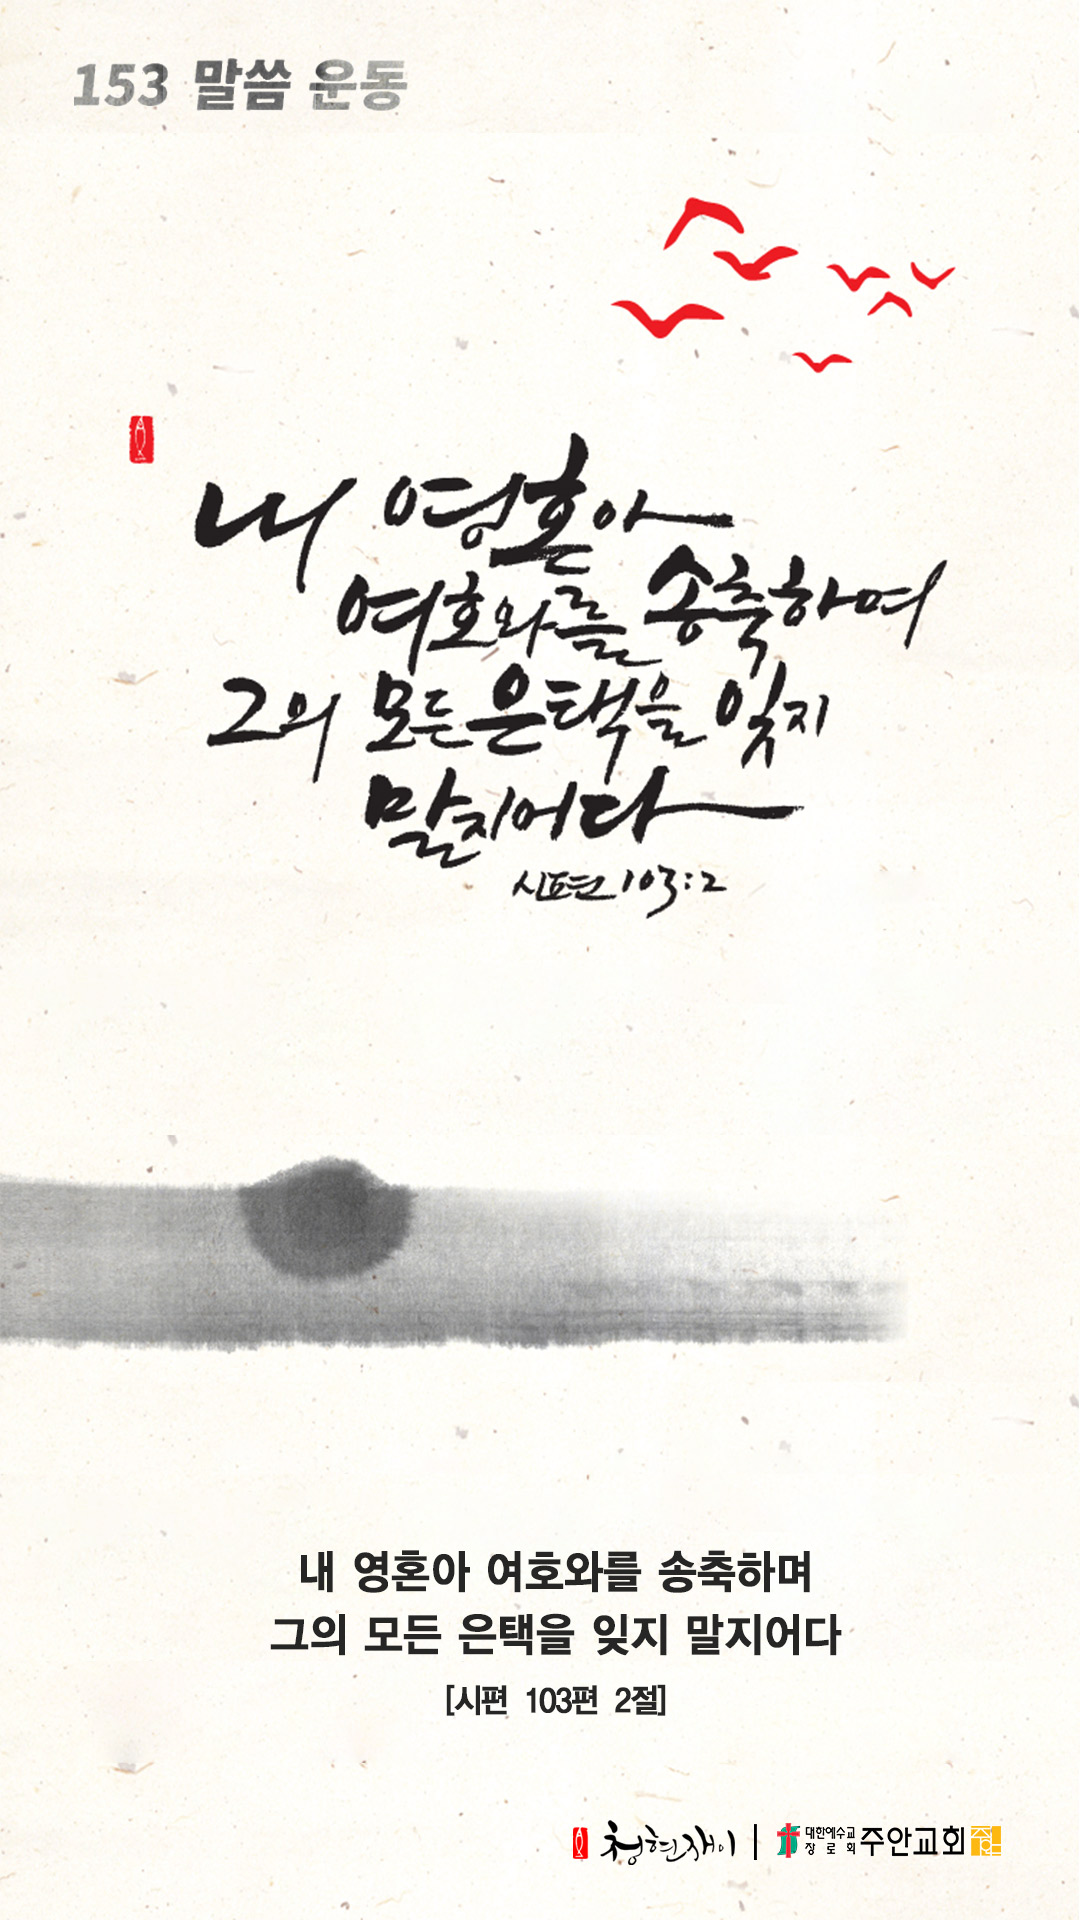 153 말씀 운동
내 영혼아
여호와를 송축하며
그의 모든 은택을 잊지
말지어다
시편 103:2
내 영혼아 여호와를 송축하며
그의 모든 은택을 잊지 말지어다
[시편 103편 2절]
청현재이 | 대한예수교장로회 주안교회 주안